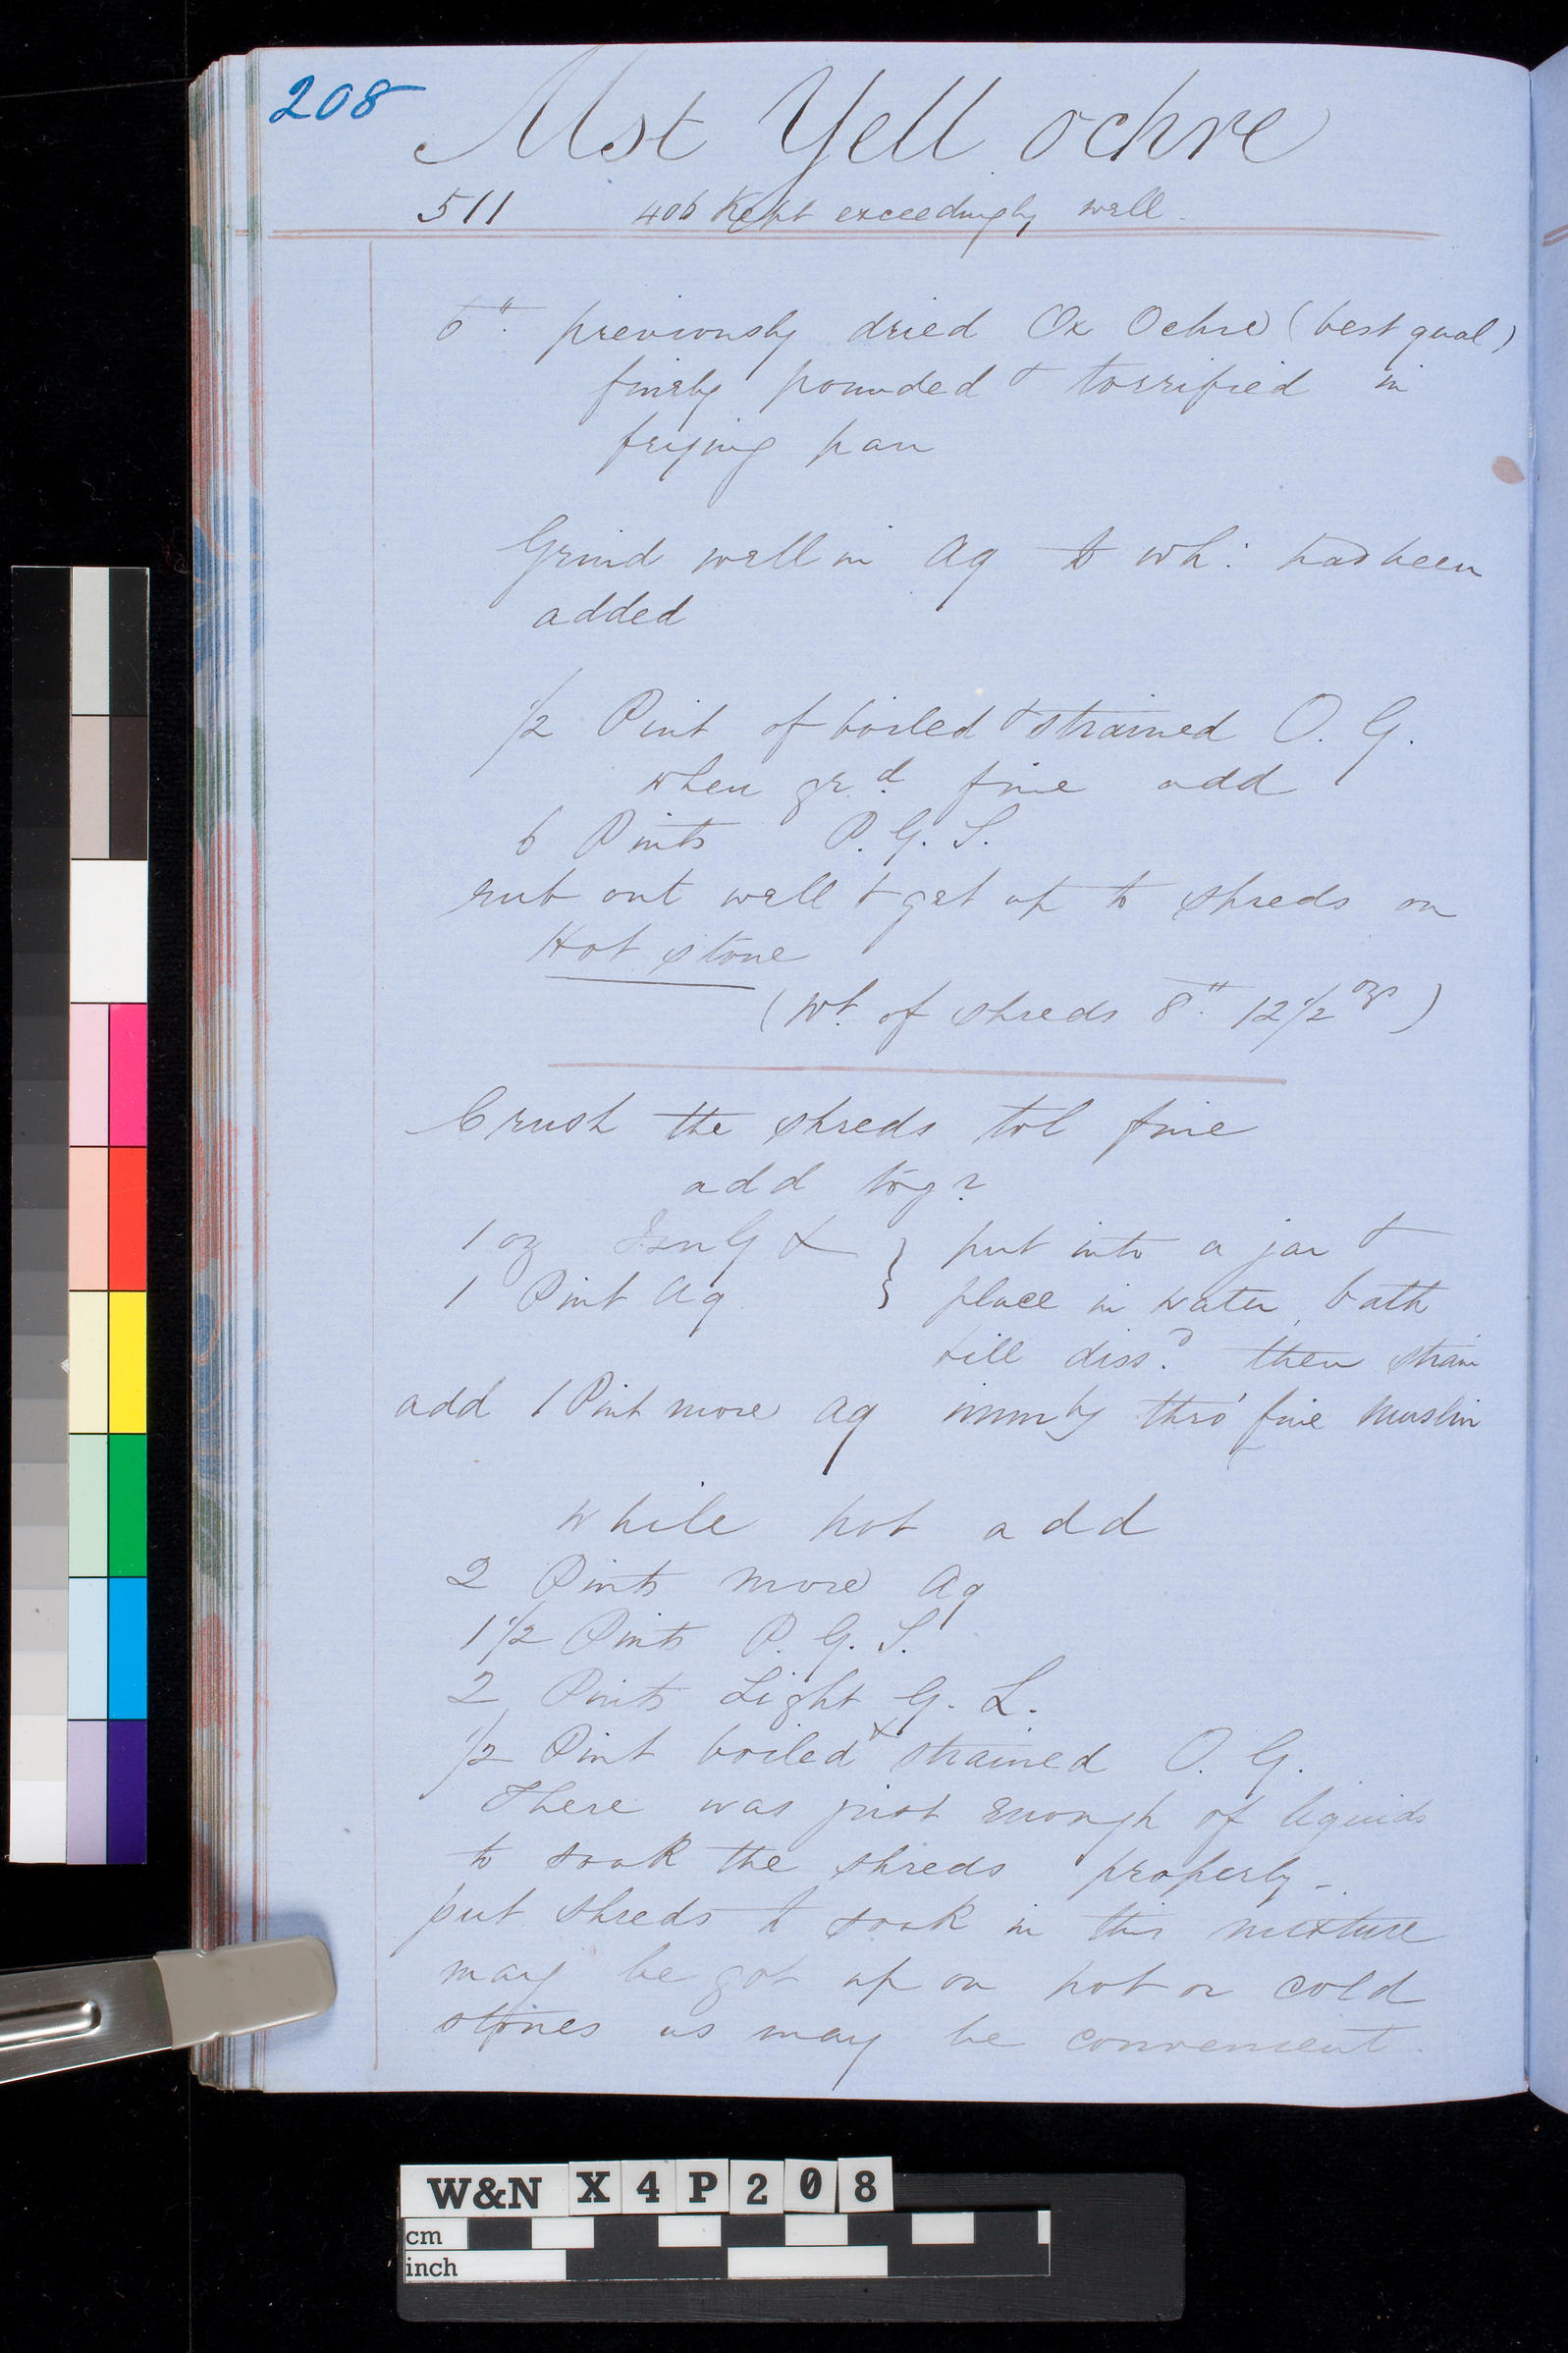 208
Mst Yell ochre
511 406 Kept exceedingly well.
6" previously dried Ox Ochre (best qual)
finely pounded & torrified in
frying pan
Grind well in Aq to wh: had been
added
1/2 Pint of boiled & strained O. G.
when grd fine add
6 Pints P. G. S.
rub out well & get up to shreds on
Hot stone
(Wt. of shreds 8" 12 1/2 ozs)
Crush the shreds tol fine
add togr
1 oz IsnGX } put into a jar &
1 Pint Aq } place in water bath
till dissd then strain
add 1 Pint more Aq immly thro' fine muslin
while hot add
2 Pints more Aq
1 1/2 Pints P. G. S.
2 Pints Light G. L.
1/2 Pint boiled & strained O. G.
There was just enough of liquids
to soak the shreds properly -
put shreds to soak in this mixture
may be got up on hot or cold
stones as may be convenient.
W&N X4P208
cm
inch